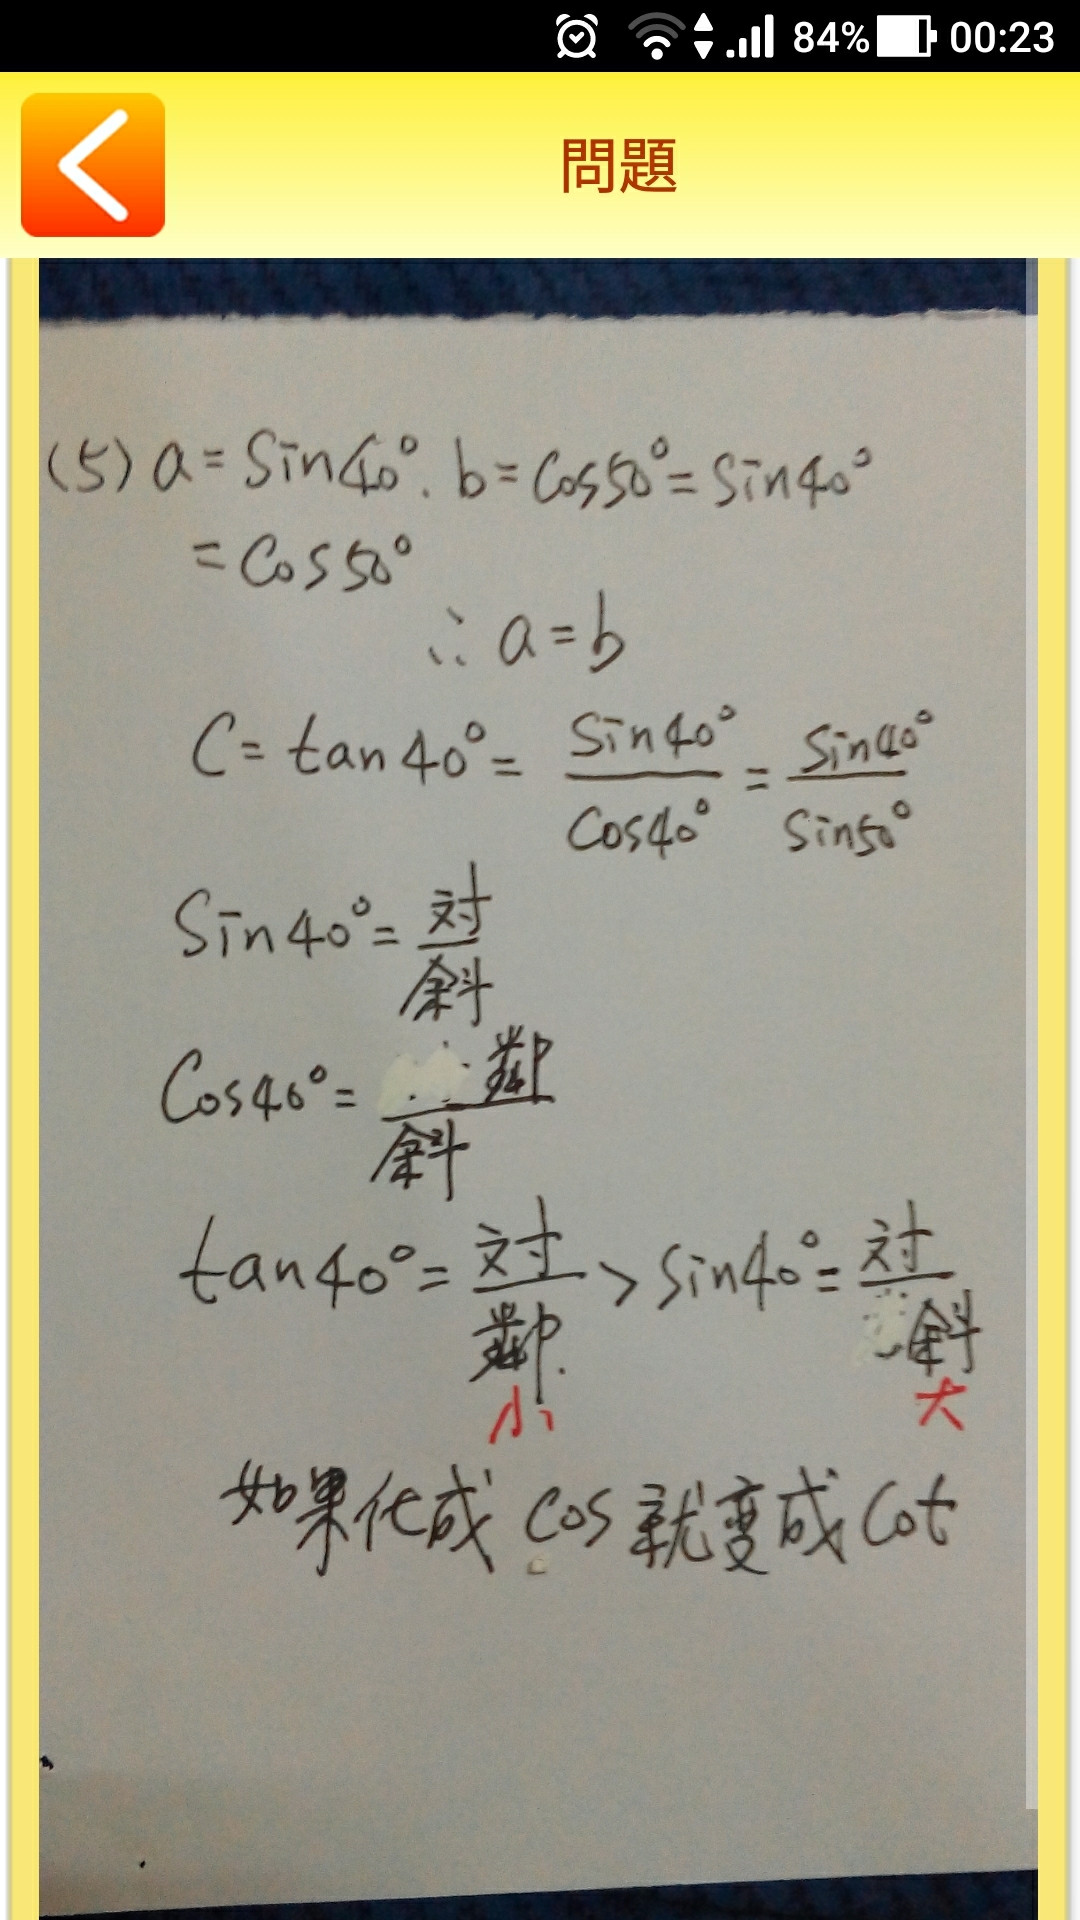 84% 00:23
問題
(5) a = Sin40°. b = Cos50° = Sin40°
= Cos50°
∴ a = b
C = tan40° = Sin40°/Cos40° = Sin40°/Sin50°
Sin40° = 対/斜
Cos40° = 鄰/斜
tan40° = 対/鄰 > Sin40° = 対/斜
小 大
如果化成 Cos 就变成 Cot